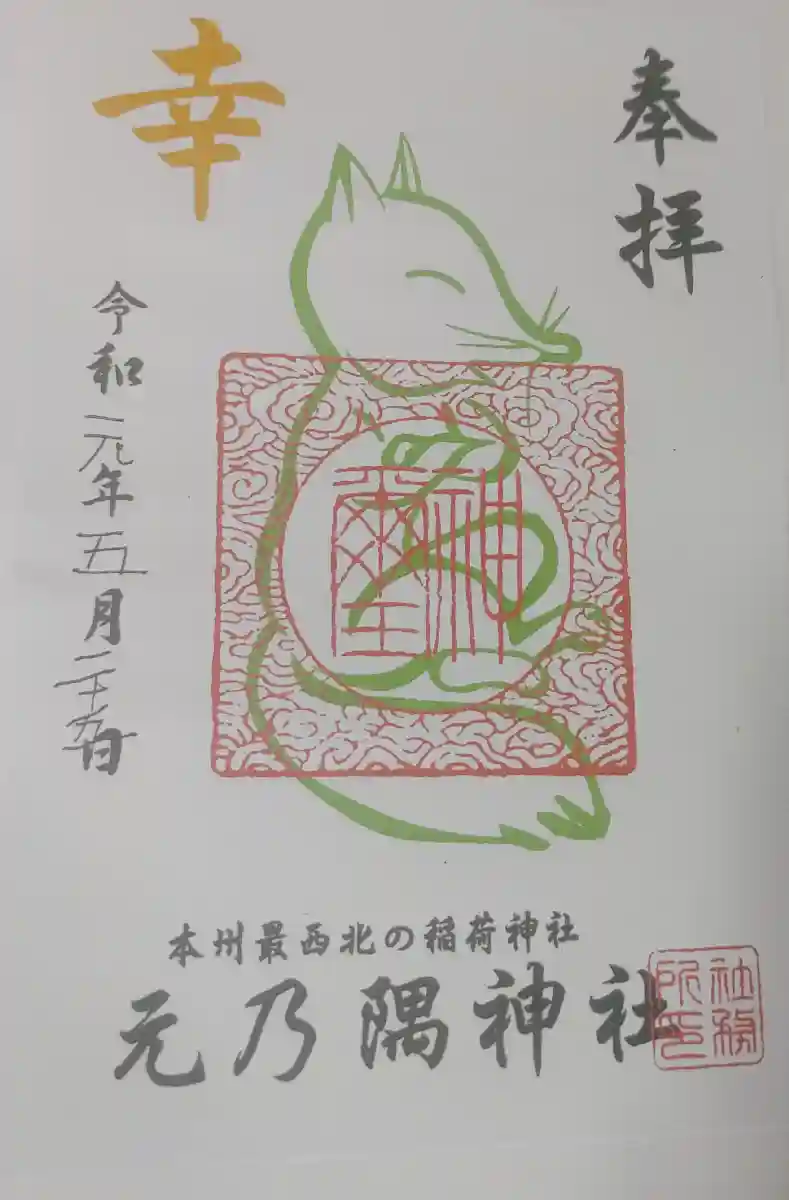 奉拝
幸
令和元年五月二十九日
神璽
本州最西北の稲荷神社
元乃隅神社
社務所印